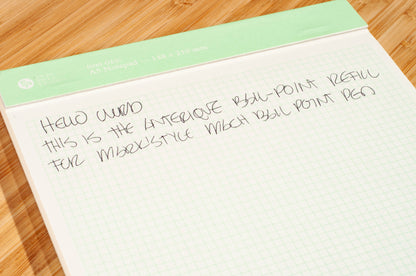 A5 Notepad — 148 x 210 mm
HELLO WORLD
THIS IS THE ANTERIQUE BALL-POINT REFILL
FOR MARK'STYLE MACH BALL POINT PEN